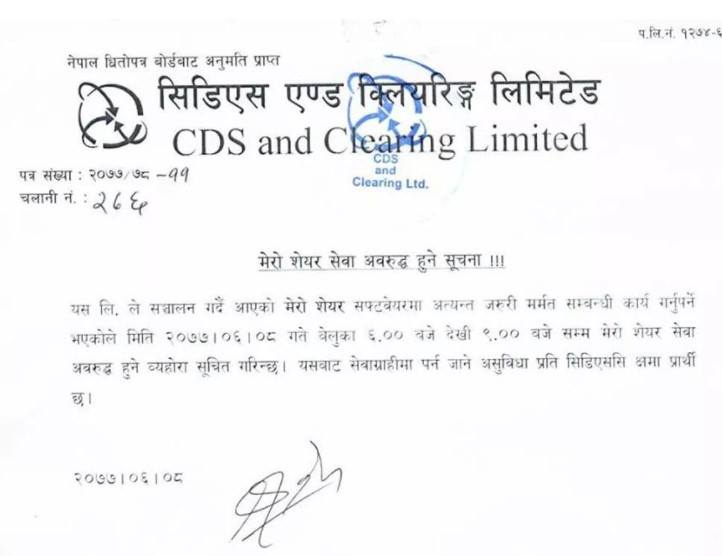 प.लि.नं. १२७४-६
नेपाल धितोपत्र बोर्डबाट अनुमति प्राप्त
सिडिएस एण्ड क्लियरिङ्ग लिमिटेड
CDS and Clearing Limited
CDS
and
Clearing Ltd.
पत्र संख्या : २०७७/७८ -११
चलानी नं. : २८६
मेरो शेयर सेवा अवरुद्ध हुने सूचना !!!
यस लि. ले सञ्चालन गर्दै आएको मेरो शेयर सफ्टवेयरमा अत्यन्त जरुरी मर्मत सम्बन्धी कार्य गर्नुपर्ने
भएकोले मिति २०७७।०६।०८ गते बेलुका ६.०० बजे देखी ९.०० बजे सम्म मेरो शेयर सेवा
अवरुद्ध हुने व्यहोरा सूचित गरिन्छ। यसबाट सेवाग्राहीमा पर्न जाने असुविधा प्रति सिडिएससि क्षमा प्रार्थी
छ।
२०७७।०६।०८